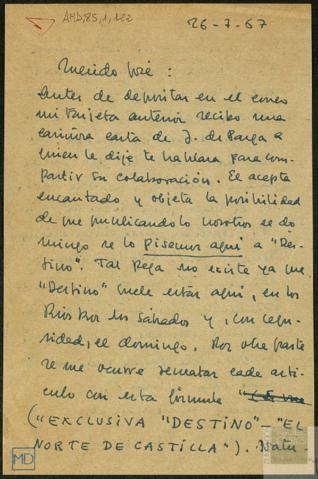 AMD,85,1,122
26-7-67
Querido José:
Antes de depositar en el correo
mi tarjeta anterior recibo una
cariñosa carta de J. de Parga a
quien le dije te hablara para com-
partir su colaboración. El acepta
encantado y objeta la posibilidad
de que publicandolo nosotros el do-
mingo se lo pisemos aquí a "Des-
tino". Tal pega no existe ya que
"Destino" suele estar aquí, en los
kioskos los sábados y, con segu-
ridad, el domingo. Por otra parte
se me ocurre rematar cada artí-
culo con esta fórmula
("EXCLUSIVA "DESTINO" – "EL
NORTE DE CASTILLA"). Natu-
MD